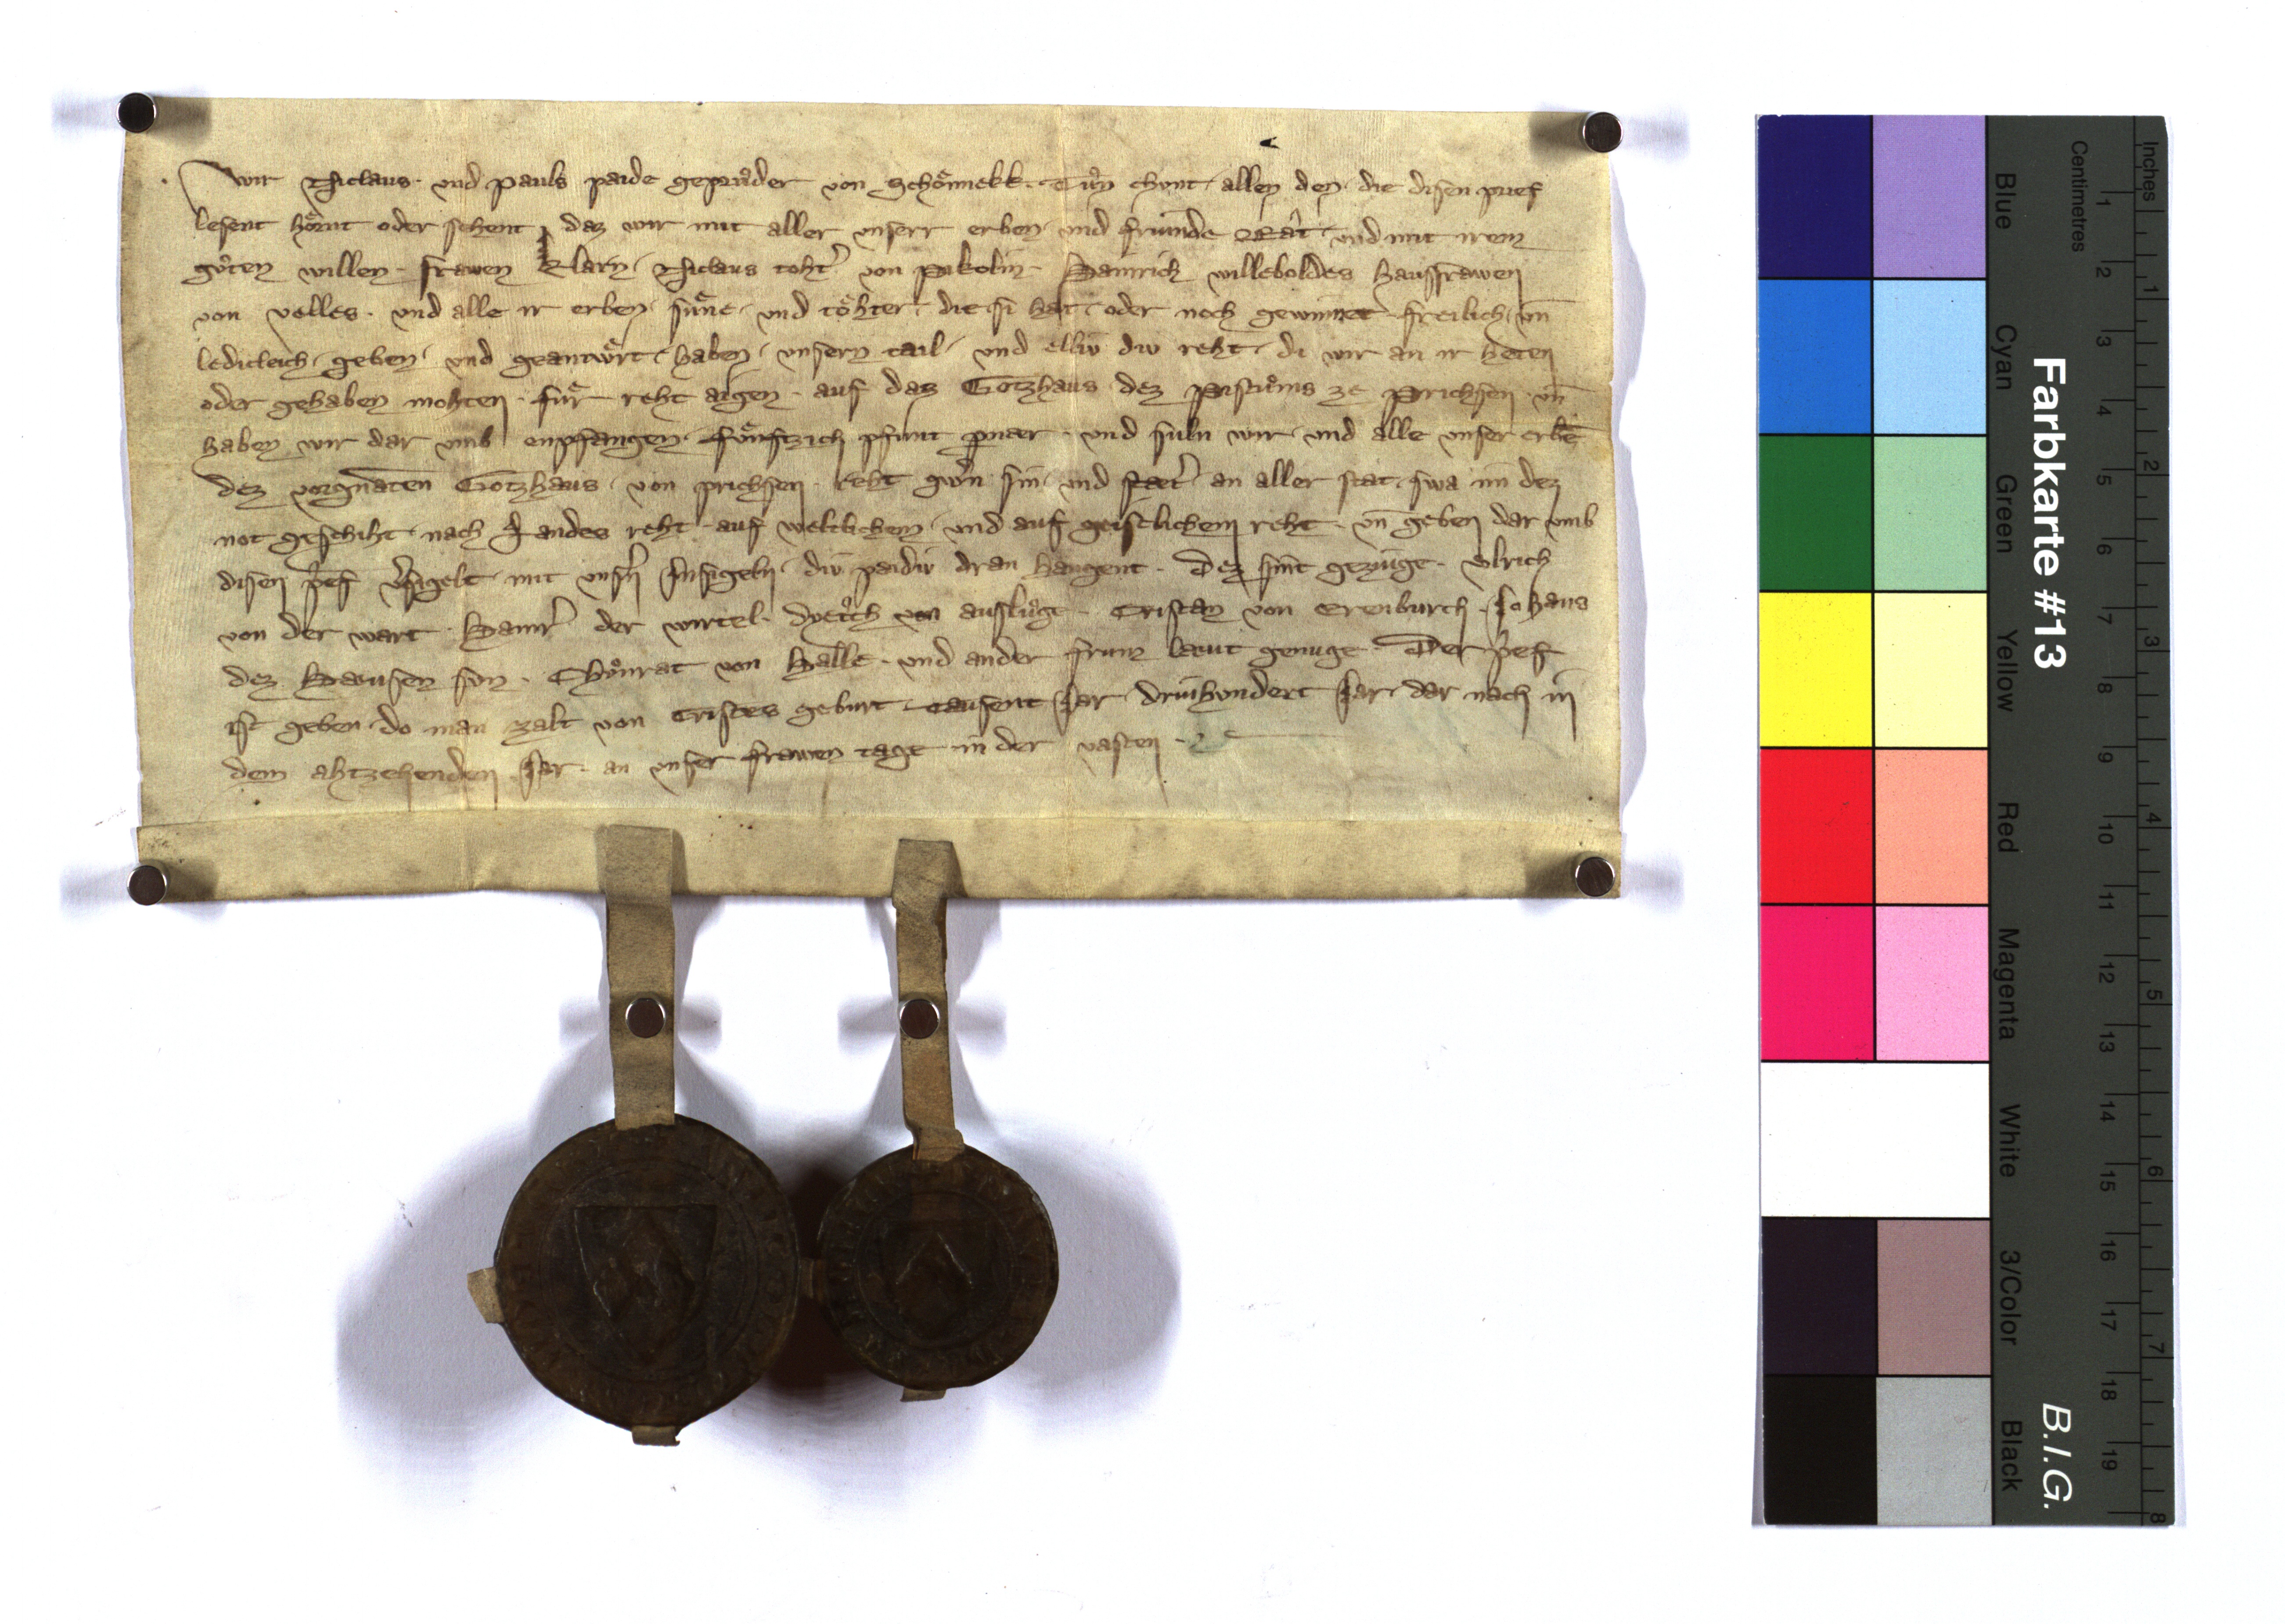 Wir Niclaus · und Pauls paide gepruͦder von Schoͤnnekk · Tuͤn chunt · allen den · die disen prief
lesent hoͤrnt oder sehent · daz wir mit aller unserr erben · und friunde Rât · und mit irem
guͦten willen · frawen Klarn · Niclaus toht' von Pukolin · Hainrich Willeboldes hausfrawen
von Velles · und alle ir erben · suͤne · und toͤhter · die si hat · oder noch gewinnet · freilich · un̄
ledicleich · geben · und geantwuͤrt · haben · unsern tail · und elliw diw reht · di wir an ir heten
oder gehaben mohten · fuͤr reht aigen · auf daz Gotzhaus dez Pistuͦms ze Prichsen · un̄
haben wir dar umb enpfangen · fuͤnftzich pfunt perner · und suln wir · und alle unser erbē
dez vorgnāten Gotzhaus · von Prichsen · reht gwern sin · und staet' an aller stat · swa im dez
not geschiht · nach Landes reht · auf weltlichem · und auf geistlichem reht · un̄ geben dar umb
disen prief v'sigelt · mit unsn̄ Insigeln · diw paidiw dran hangent · Dez sint geziuge · Ulrich
von der Wart · Hainr' der Wirtel · Dyetrich von Aufluͦge · Cristan von Erenburch · Johans
dez Hausen sun · Chuͦnrat von Halle · und ander frum laeut genuge · Der prief
ist geben · do man zalt von Cristes geburt · Tausent Jar · driuhundert Jar · dar nach in
dem ahtzehenden Jar · an unser frawen tage in der vasten ·
Farbkarte #13
B.I.G.
Inches
Centimetres
1 2 3 4 5 6 7 8
1 2 3 4 5 6 7 8 9 10 11 12 13 14 15 16 17 18 19
Blue Cyan Green Yellow Red Magenta White 3/Color Black